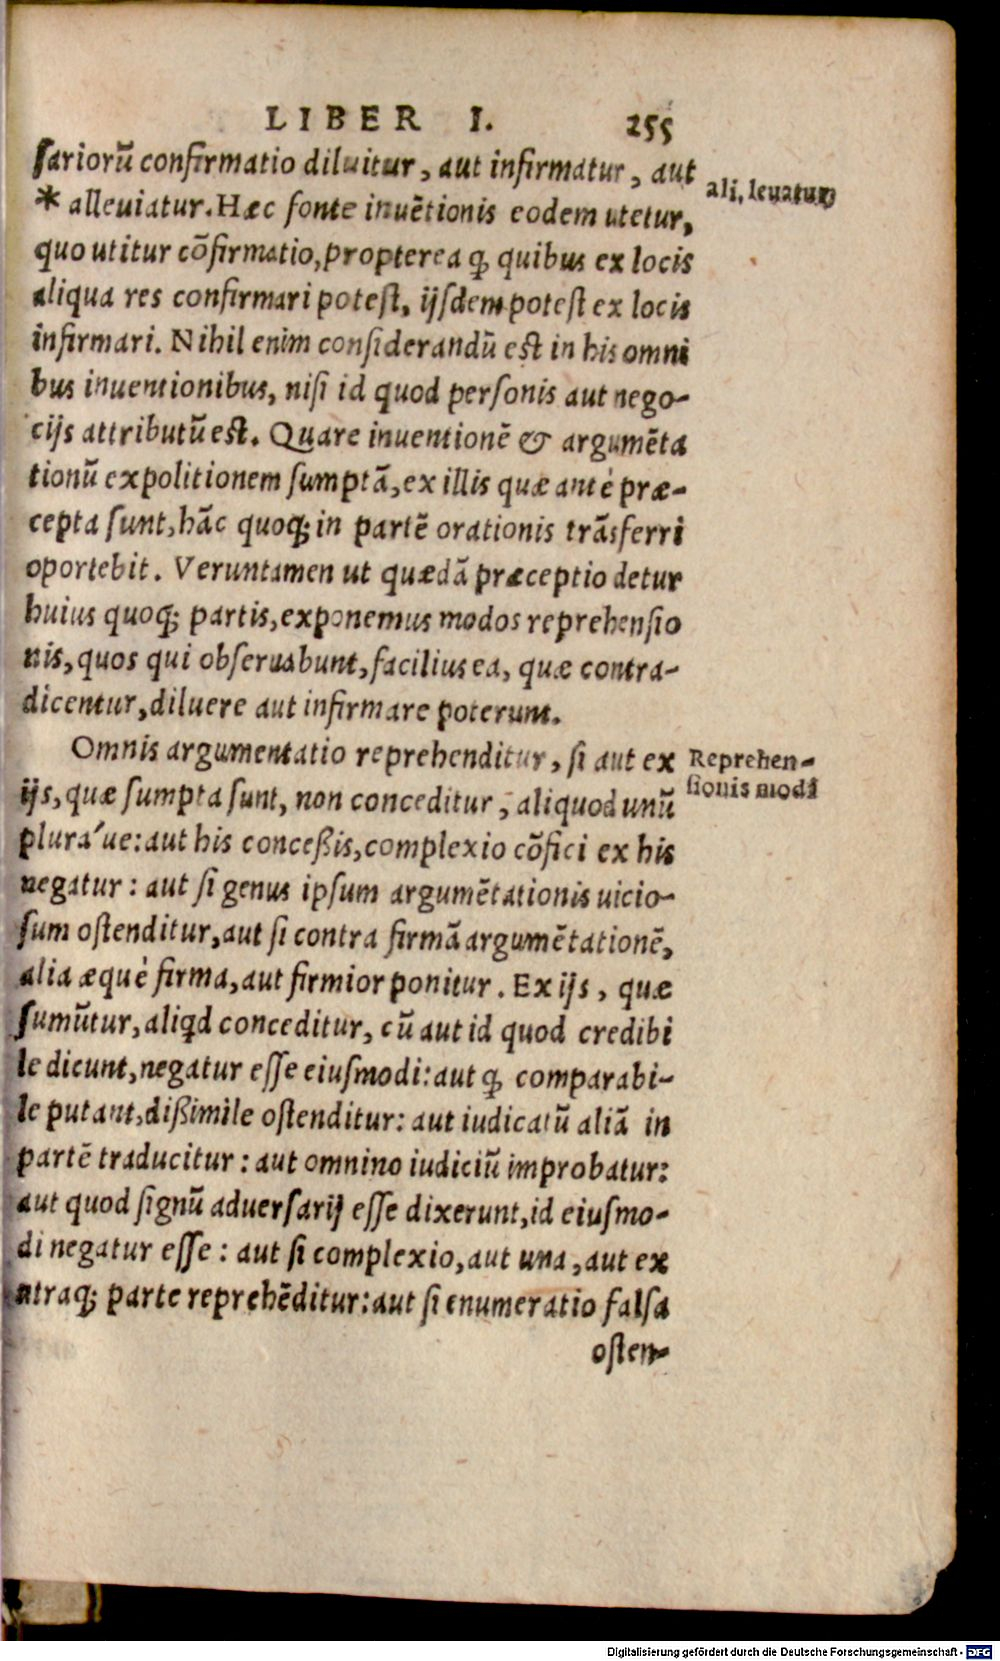 LIBER I. 255
sariorũ confirmatio diluitur, aut infirmatur, aut
ali, leuatur
* alleuiatur. Hæc fonte inuẽtionis eodem utetur,
quo utitur cõfirmatio, propterea ꝙ quibus ex locis
aliqua res confirmari potest, ijsdem potest ex locis
infirmari. Nihil enim considerandũ est in his omni
bus inuentionibus, nisi id quod personis aut nego-
cijs attributũ est. Quare inuentionẽ & argumẽta
tionũ expolitionem sumptã, ex illis quæ antè præ-
cepta sunt, hãc quoq; in partẽ orationis trãsferri
oportebit. Veruntamen ut quædã præceptio detur
huius quoq; partis, exponemus modos reprehensio
nis, quos qui obseruabunt, facilius ea, quæ contra-
dicentur, diluere aut infirmare poterunt.
Omnis argumentatio reprehenditur, si aut ex
Reprehen-
sionis modi
ijs, quæ sumpta sunt, non conceditur, aliquod unũ
plura´ue: aut his conceßis, complexio cõfici ex his
negatur: aut si genus ipsum argumẽtationis uicio-
sum ostenditur, aut si contra firmã argumẽtationẽ,
alia æquè firma, aut firmior ponitur. Ex ijs, quæ
sumũtur, aliqd conceditur, cũ aut id quod credibi
le dicunt, negatur esse eiusmodi: aut ꝙ comparabi-
le putant, dißimile ostenditur: aut iudicatũ aliã in
partẽ traducitur: aut omnino iudiciũ improbatur:
aut quod signũ aduersarij esse dixerunt, id eiusmo-
di negatur esse: aut si complexio, aut una, aut ex
utraq; parte reprehẽditur: aut si enumeratio falsa
osten-
Digitalisierung gefördert durch die Deutsche Forschungsgemeinschaft - DFG